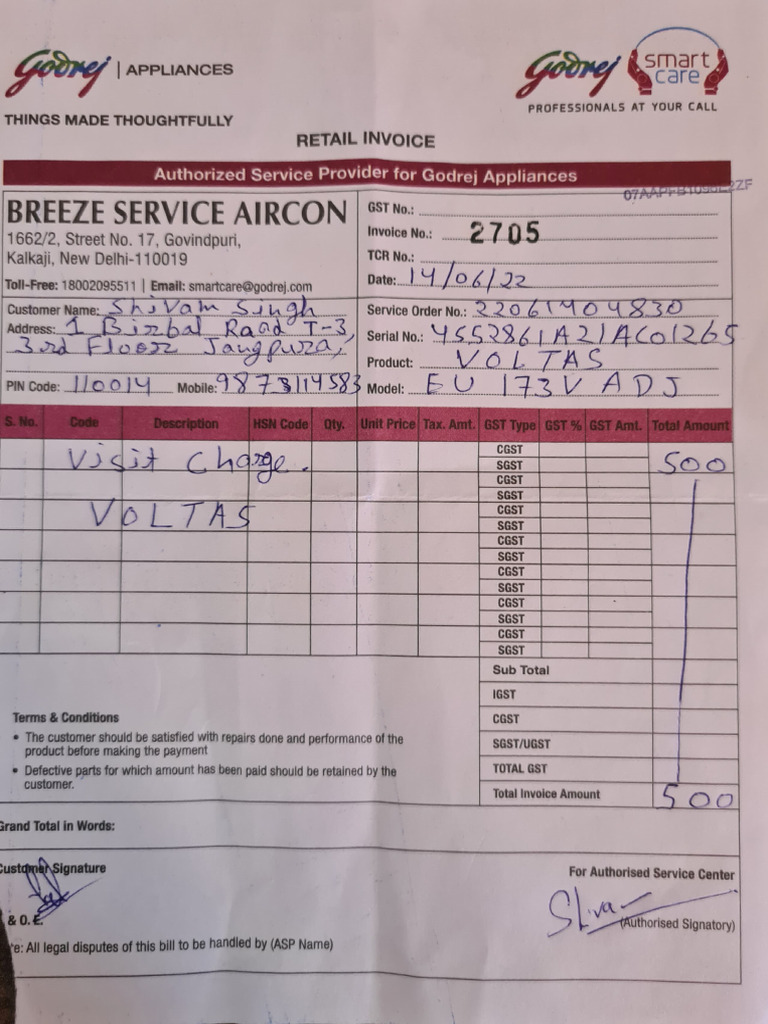 Godrej | APPLIANCES
THINGS MADE THOUGHTFULLY
Godrej smart care
PROFESSIONALS AT YOUR CALL
RETAIL INVOICE
Authorized Service Provider for Godrej Appliances
BREEZE SERVICE AIRCON
1662/2, Street No. 17, Govindpuri,
Kalkaji, New Delhi-110019
Toll-Free: 18002095511 | Email: smartcare@godrej.com
GST No.:
Invoice No.: 2705
TCR No.:
Date: 14/06/22
Customer Name: Shivam Singh
Address: 1 Birbal Road T-3,
3rd Floor Jangpura,
PIN Code: 110014 Mobile: 9873114583
Service Order No.: 22061404830
Serial No.: 4552861A21AC01265
Product: VOLTAS
Model: EU 173V ADJ
S. No. Code Description HSN Code Qty. Unit Price Tax. Amt. GST Type GST % GST Amt. Total Amount
Visit Charge. CGST
SGST 500
CGST
SGST
VOLTAS CGST
SGST
CGST
SGST
CGST
SGST
CGST
SGST
CGST
SGST
Sub Total
IGST
CGST
SGST/UGST
TOTAL GST
Total Invoice Amount 500
Terms & Conditions
• The customer should be satisfied with repairs done and performance of the
product before making the payment
• Defective parts for which amount has been paid should be retained by the
customer.
Grand Total in Words:
Customer Signature
For Authorised Service Center
(Authorised Signatory)
& O. E.
e: All legal disputes of this bill to be handled by (ASP Name)